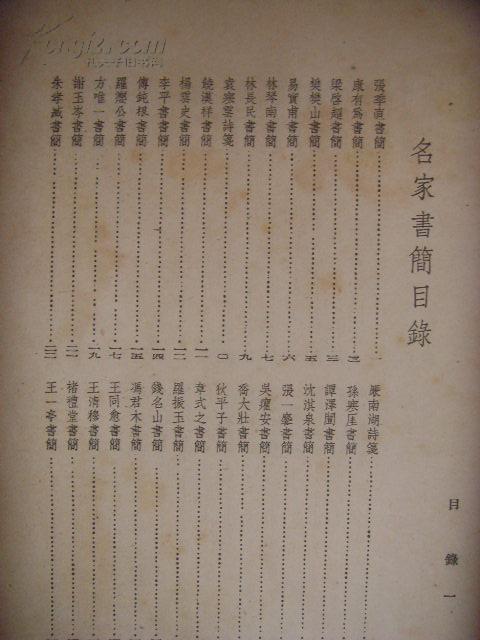 名家書簡目錄
張季直書簡 一
康有爲書簡 二
梁啓超書簡 三
樊樊山書簡 五
易實甫書簡 六
林琴南書簡 七
林長民書簡 九
袁寒雲詩箋 一〇
饒漢祥書簡 一一
楊雲史書簡 一二
李平書書簡 一四
傅鈍根書簡 一五
羅癭公書簡 一七
方唯一書簡 一九
謝玉岑書簡 二一
朱孝臧書簡 二二
嚴南湖詩箋
孫寒厓書簡
譚澤闓書簡
沈淇泉書簡
張一麐書簡
吳癯安書簡
喬大壯書簡
狄平子書簡
章式之書簡
羅振玉書簡
錢名山書簡
馮君木書簡
王同愈書簡
王清穆書簡
褚禮堂書簡
王一亭書簡
目錄 一
Kongfz.com
孔夫子旧书网